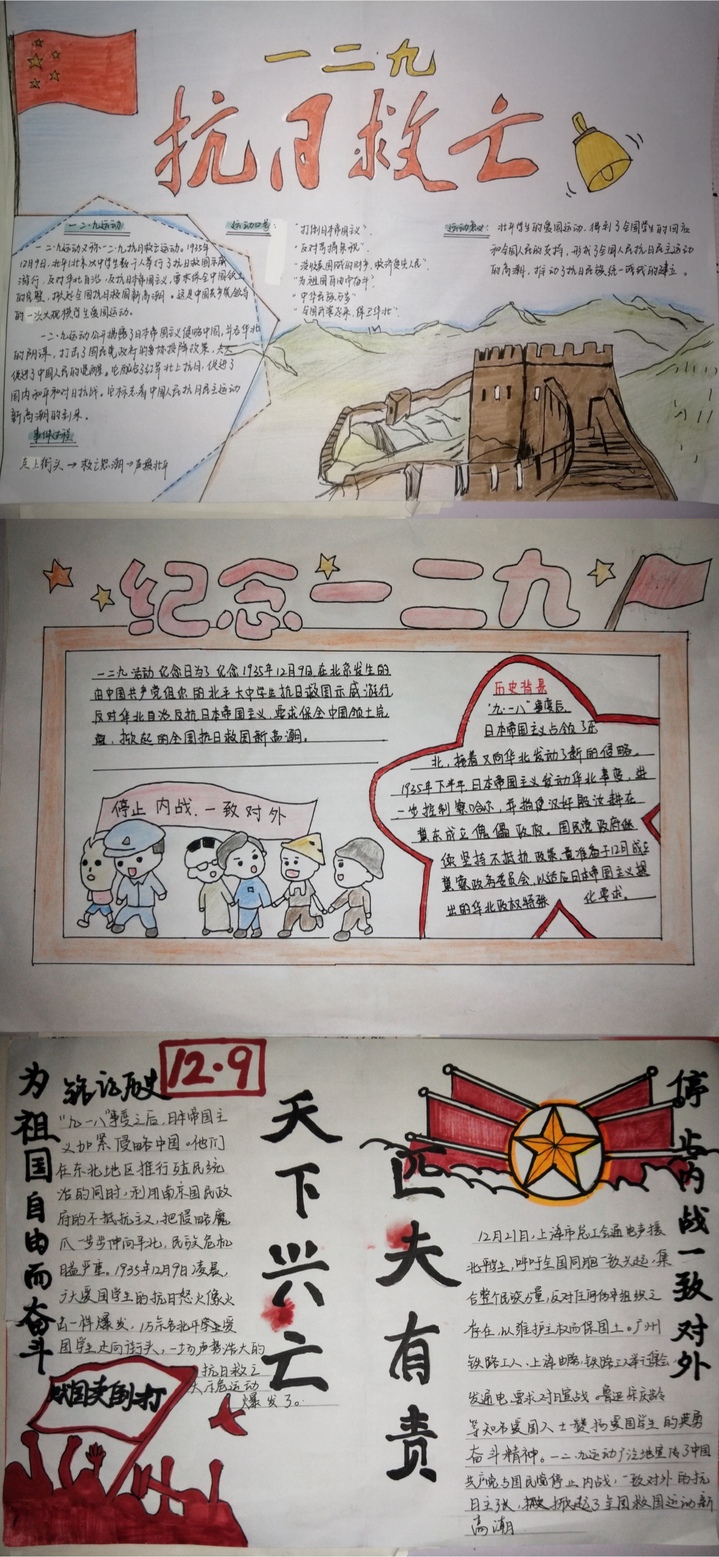 一二九
抗日救亡
一二·九运动
一二·九运动又称一二·九抗日救亡运动。1935年
12月9日，北平（北京）大中学生数千人举行了抗日救国示威
游行，反对华北自治，反抗日本帝国主义，要求保全中国领土
的完整，掀起全国抗日救国新高潮。这是中国共产党领导
的一次大规模学生爱国运动。
一二·九运动公开揭露了日本帝国主义侵略中国，并吞华北
的阴谋，打击了国民党政府的妥协投降政策，大大
促进了中国人民的觉醒。它配合了红军北上抗日，促进了
国内和平和对日抗战。它标志着中国人民抗日民主运动
新高潮的到来。
事件过程
走上街头→救亡怒潮→声援北平
运动口号：
"打倒日本帝国主义"、
"反对华北自治"、
"为祖国自由而奋斗"、
"中华民族万岁"
运动意义：北平学生的爱国运动，得到了全国学生的响应
和全国人民的支持，形成了全国人民抗日民主运动
的高潮，推动了抗日民族统一战线的建立。
纪念一二九
一二九活动纪念日为了纪念1935年12月9日，在北京发生的
由中国共产党组织的北平大中学生抗日救国示威游行
反对华北自治反抗日本帝国主义，要求保全中国领土完
整，掀起的全国抗日救国新高潮。
停止内战.一致对外
历史背景
"九·一八"事变后
日本帝国主义占领了东
北，接着又向华北发动了新的侵略。
1935年下半年日本帝国主义发动华北事变，进
一步控制察哈尔，并指使汉奸殷汝耕在
冀东成立傀儡政权。国民党政府继
续坚持不抵抗政策，竟准备于12月成立
冀察政务委员会，以适应日本帝国主义提
出的华北政权特殊化要求。
为祖国自由而奋斗
铭记历史
12·9
"九一八"事变之后，日本帝国主
义加紧侵略中国。他们
在东北地区推行殖民统
治的同时，利用南京国民政
府的不抵抗主义，把侵略魔
爪一步步伸向华北，民族危机
日益严重。1935年12月9日凌晨，
广大爱国学生的抗日怒火像火
山一样爆发，
国学生走向街头，一场声势浩大的
抗日救亡
运动
爆发了。
打倒卖国贼
天下兴亡
匹夫有责
停止内战一致对外
12月21日，上海市总工会通电声援
北平学生，呼吁全国同胞一致兴起，集
合整个民族力量，反对任何伪组织之
存在，以维护主权而保国土。广州
铁路工人、上海邮务、铁路工人举行集会
发通电，要求对日宣战。鲁迅、宋庆龄
等知名爱国人士赞扬爱国学生的英勇
奋斗精神。一二·九运动广泛地宣传了中国
共产党与国民党停止内战，一致对外的抗
日主张，掀起了全国救国运动新
高潮